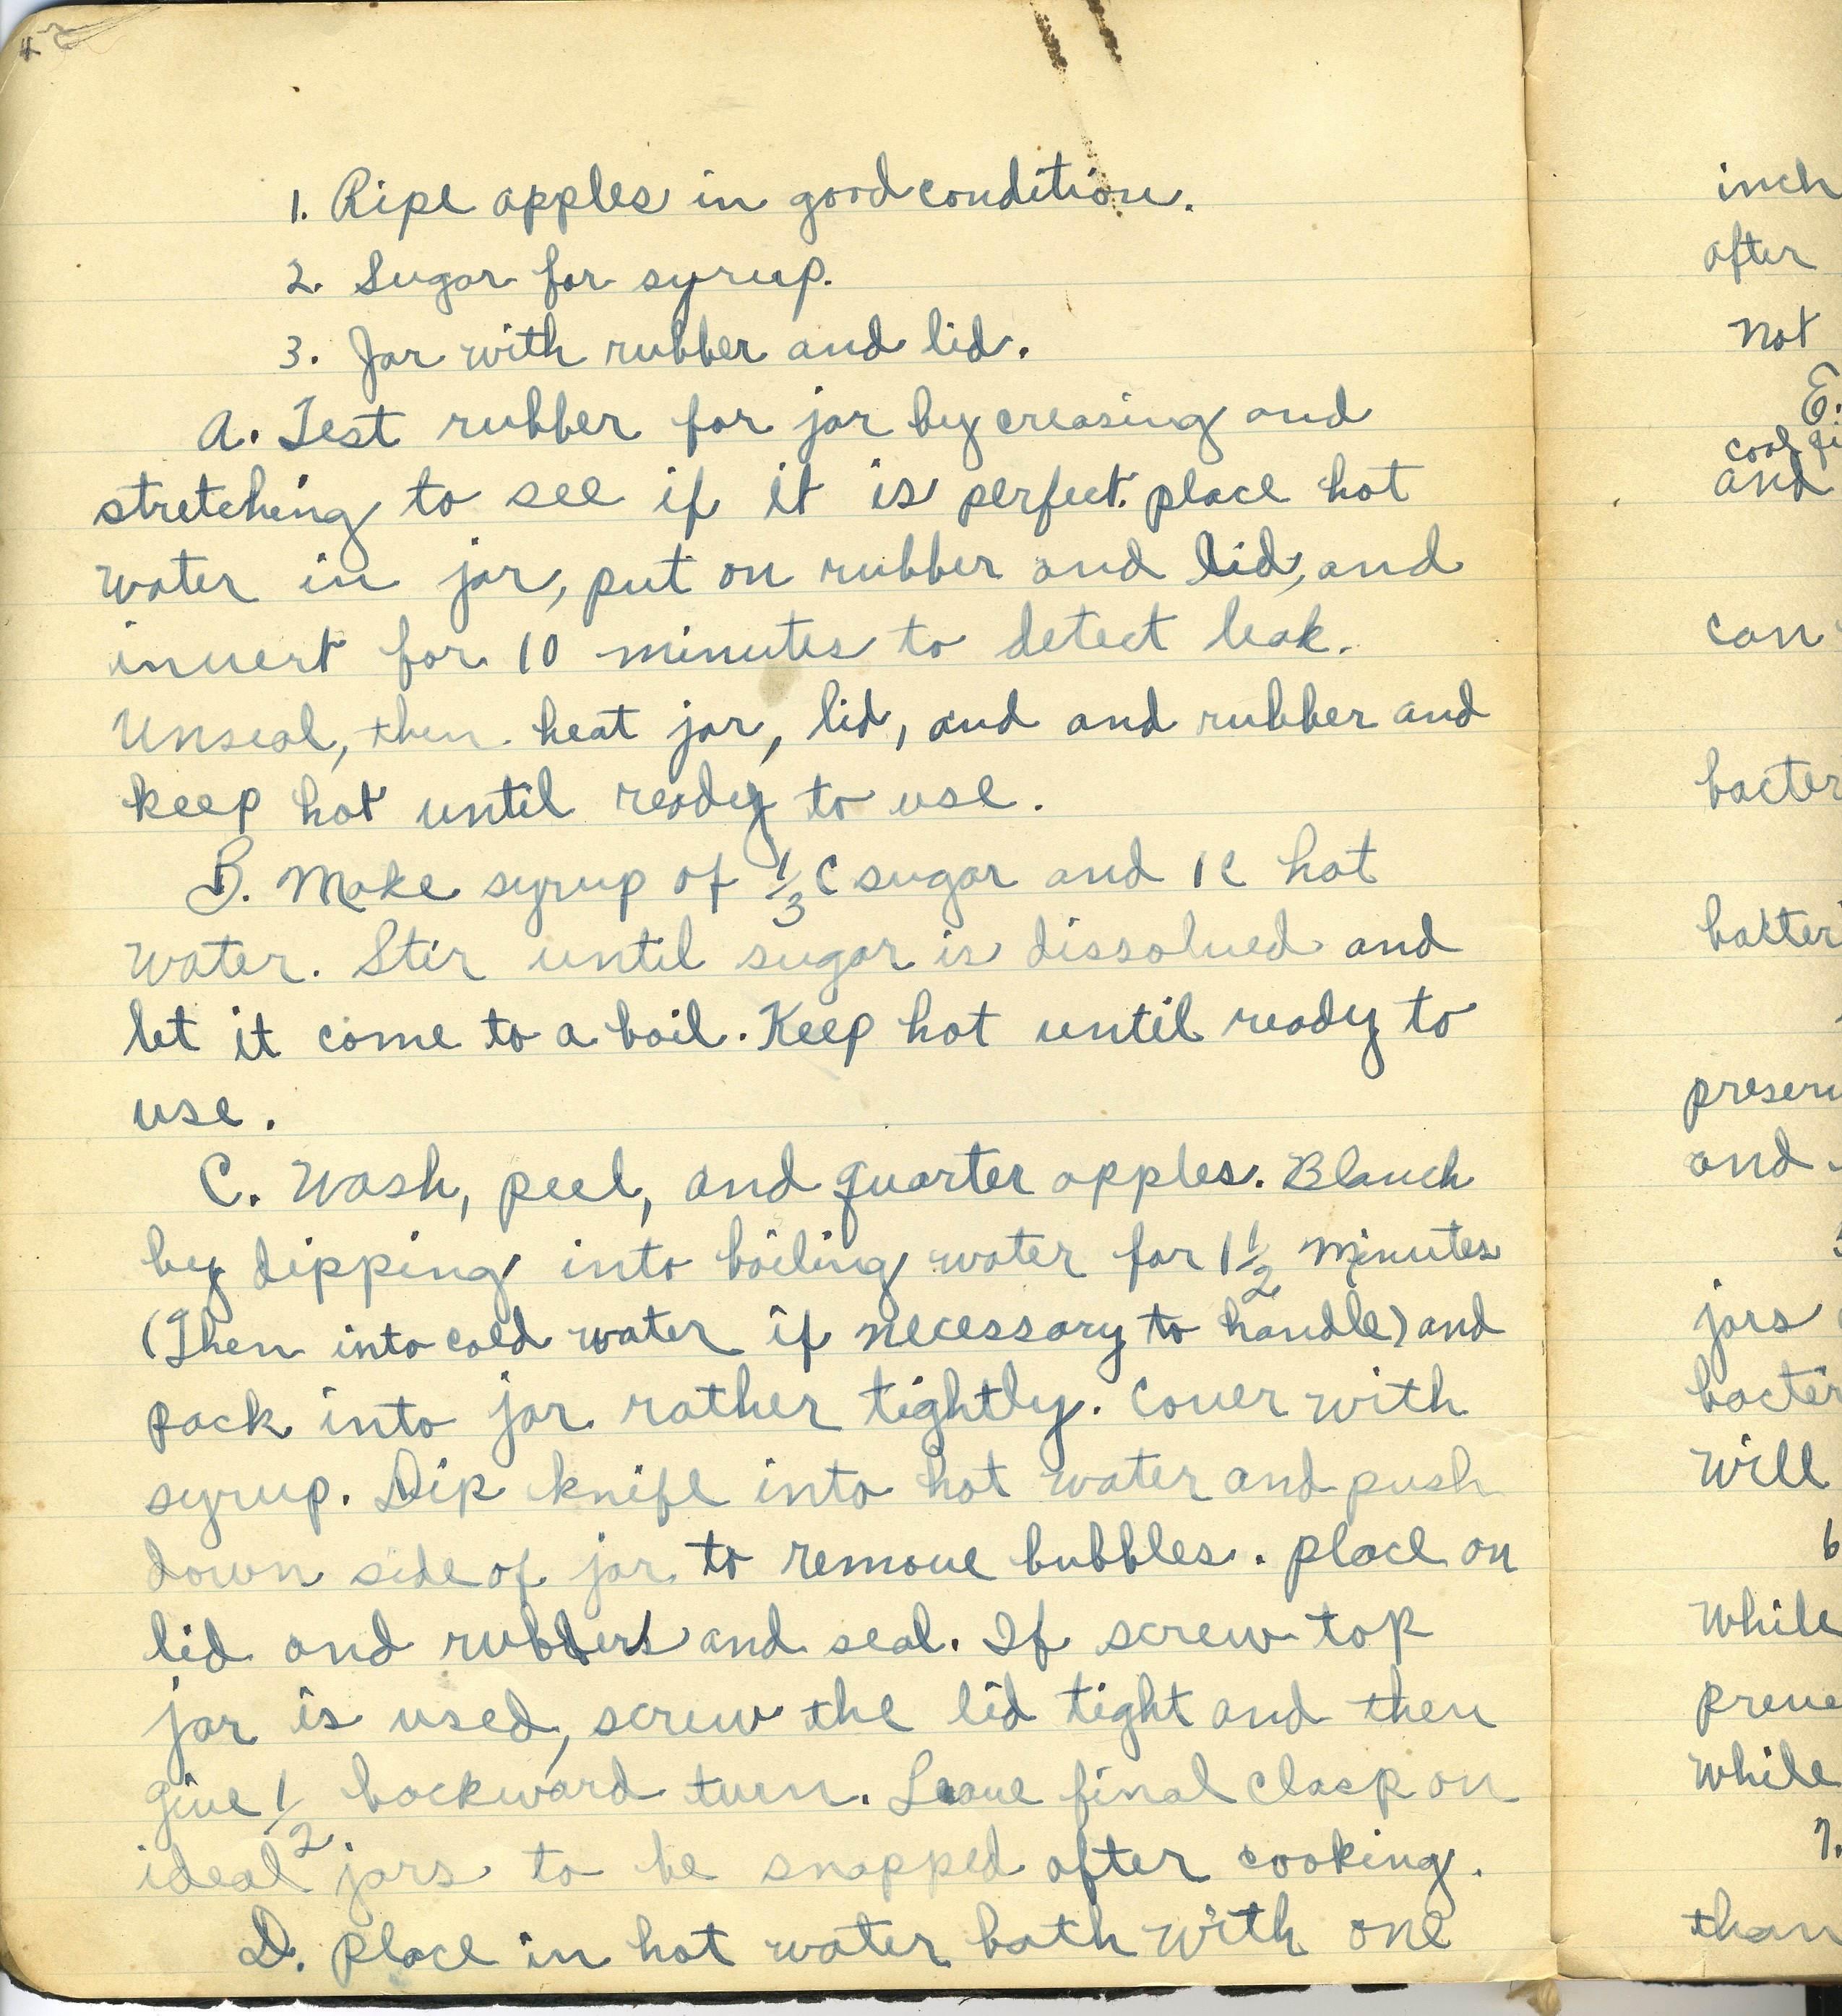 42
1. Ripe apples in good condition.
2. Sugar for syrup.
3. Jar with rubber and lid.
A. Test rubber for jar by creasing and
stretching to see if it is perfect. place hot
water in jar, put on rubber and lid, and
invert for 10 minutes to detect leak.
Unseal, then heat jar, lid, and and rubber and
keep hot until ready to use.
B. Make syrup of 1/3 C sugar and 1 C hot
water. Stir until sugar is dissolved and
let it come to a boil. Keep hot until ready to
use.
C. Wash, peel, and quarter apples. Blanch
by dipping into boiling water for 1 1/2 minutes
(Then into cold water if necessary to handle) and
pack into jar rather tightly. Cover with
syrup. Dip knife into hot water and push
down side of jar to remove bubbles. place on
lid and rubbers and seal. If screw top
jar is used, screw the lid tight and then
give 1/2 backward turn. Leave final clasp on
ideal jars to be snapped after cooking.
D. place in hot water bath with one
inch
after
not
E.
cool
and
can
bacter
bakter
preserv
and
jars
bacter
will
6
while
preve
while
7.
than